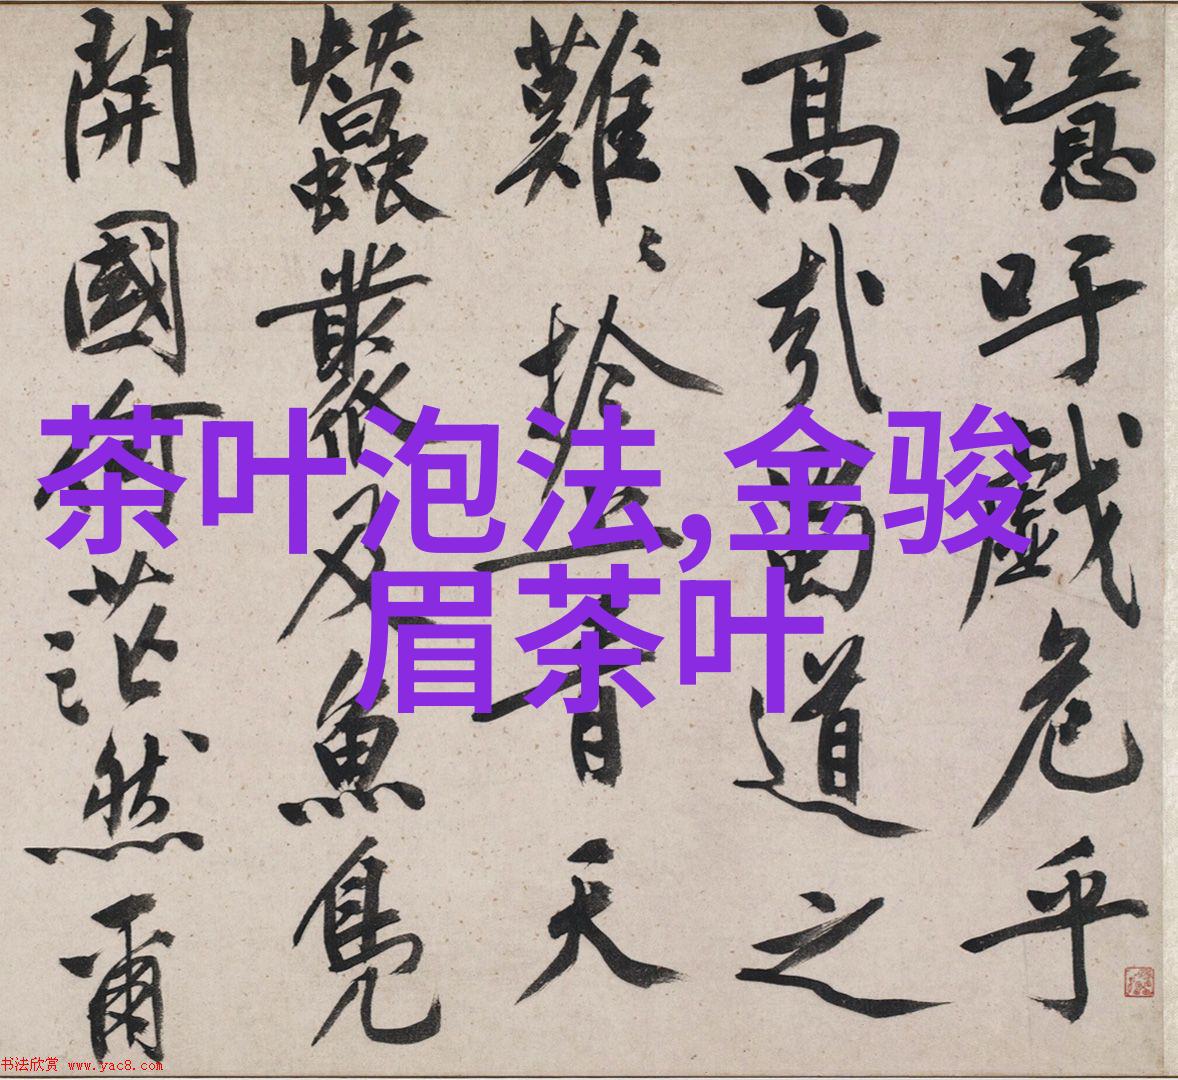 噫吁戲危乎
高哉蜀道之
難〻扵上青天
蠶叢及魚鳧
開國何茫然爾
茶叶泡法,金骏
眉茶叶
书法欣赏 www.yac8.com